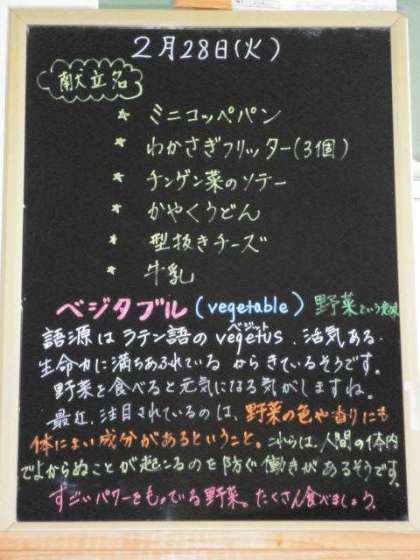 2月28日(火)
献立名
* ミニコッペパン
* わかさぎフリッター(3個)
* チンゲン菜のソテー
* かやくうどん
* 型抜きチーズ
* 牛乳
ベジタブル(vegetable) 野菜という意味
ベジット
語源はラテン語のvegetus、活気ある・
生命力に満ちあふれているからきているそうです。
野菜を食べると元気になる気がしますね。
最近、注目されているのは、野菜の色や香りにも
体によい成分があるということ。これらは、人間の体内
でよからぬことが起こるのを防ぐ働きがあるそうです。
すごいパワーをもっている野菜。たくさん食べましょう。